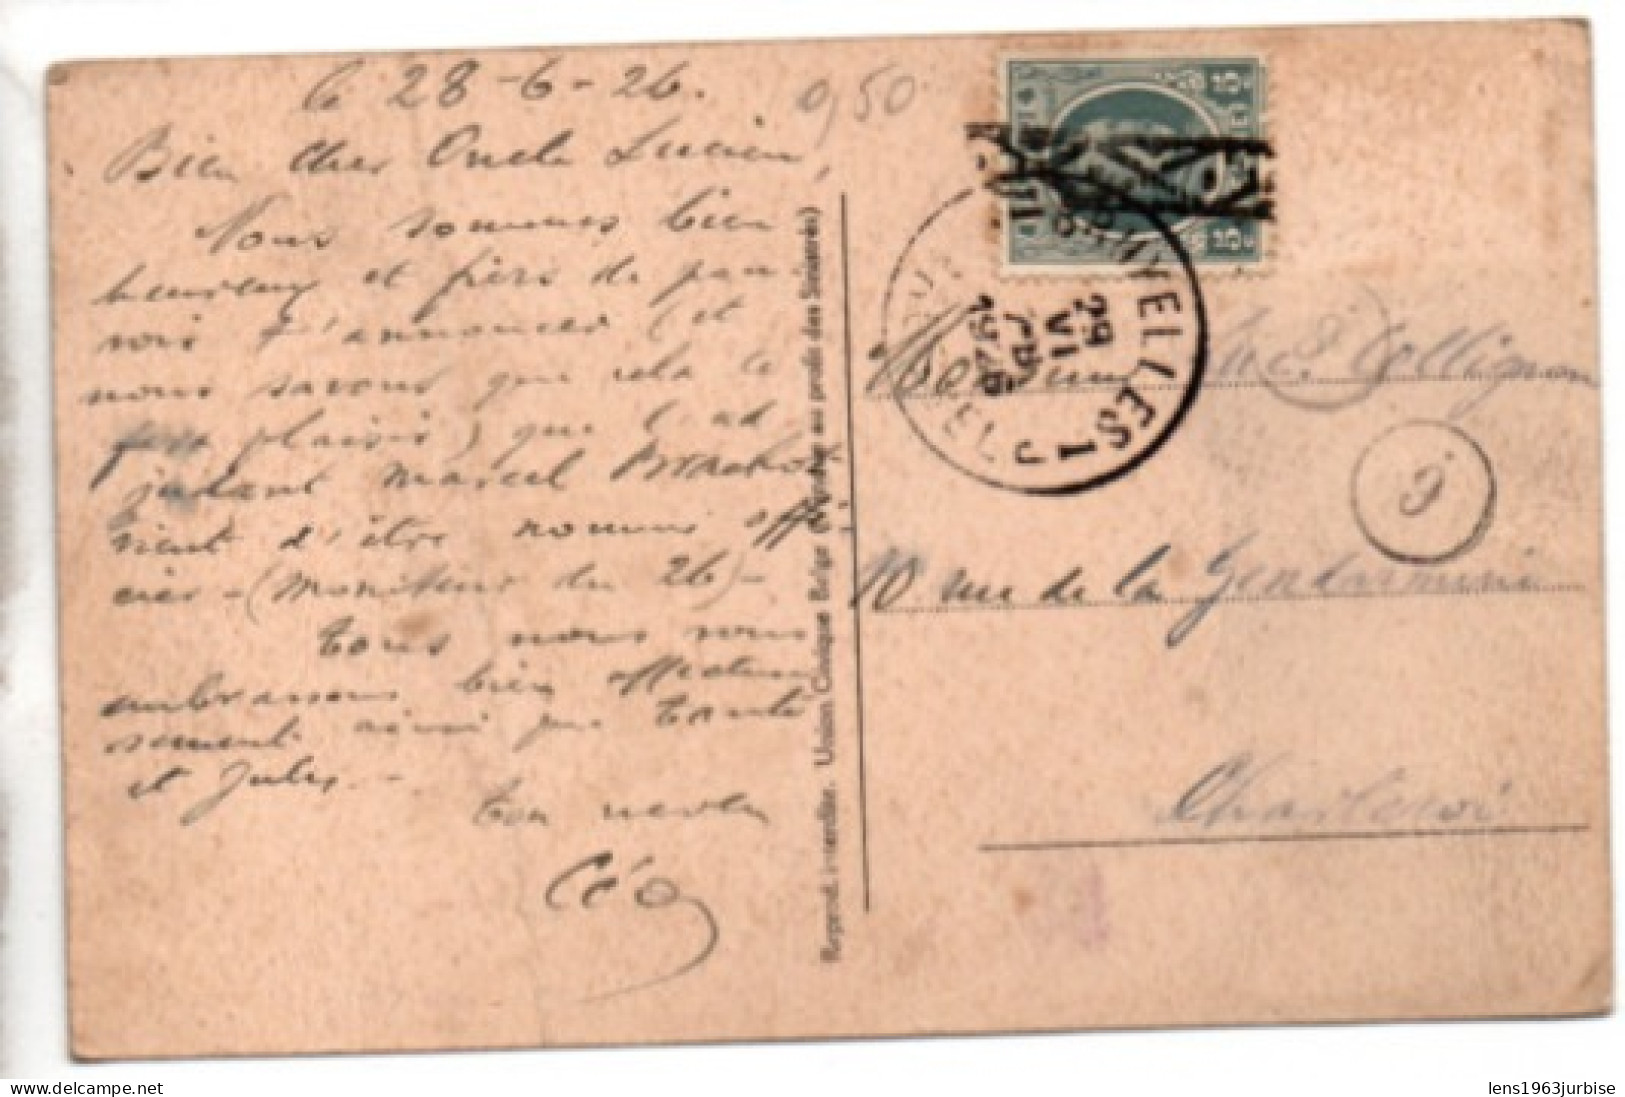 le 28-6-26.
0,50
Bien cher Oncle Lucien,
Nous sommes bien
heureux et fiers de pou
voir t'annoncer (et
nous savons que cela te
fera plaisir) que l'ad
judant Marcel
vient d'être nommé offi
cier - (Moniteur du 26) -
Tous nous vous
embrassons bien affectueu
sement ainsi que tante
et Jules. -
Ton neveu
Léo
Reprod. interdite. Union Civique Belge (Vendu au profit des Sinistrés)
BRUXELLES 1
BRUSSEL 1
29
VI
1926
Collignon
10 rue de la Gendarmerie
Charleroi
lens1963jurbise